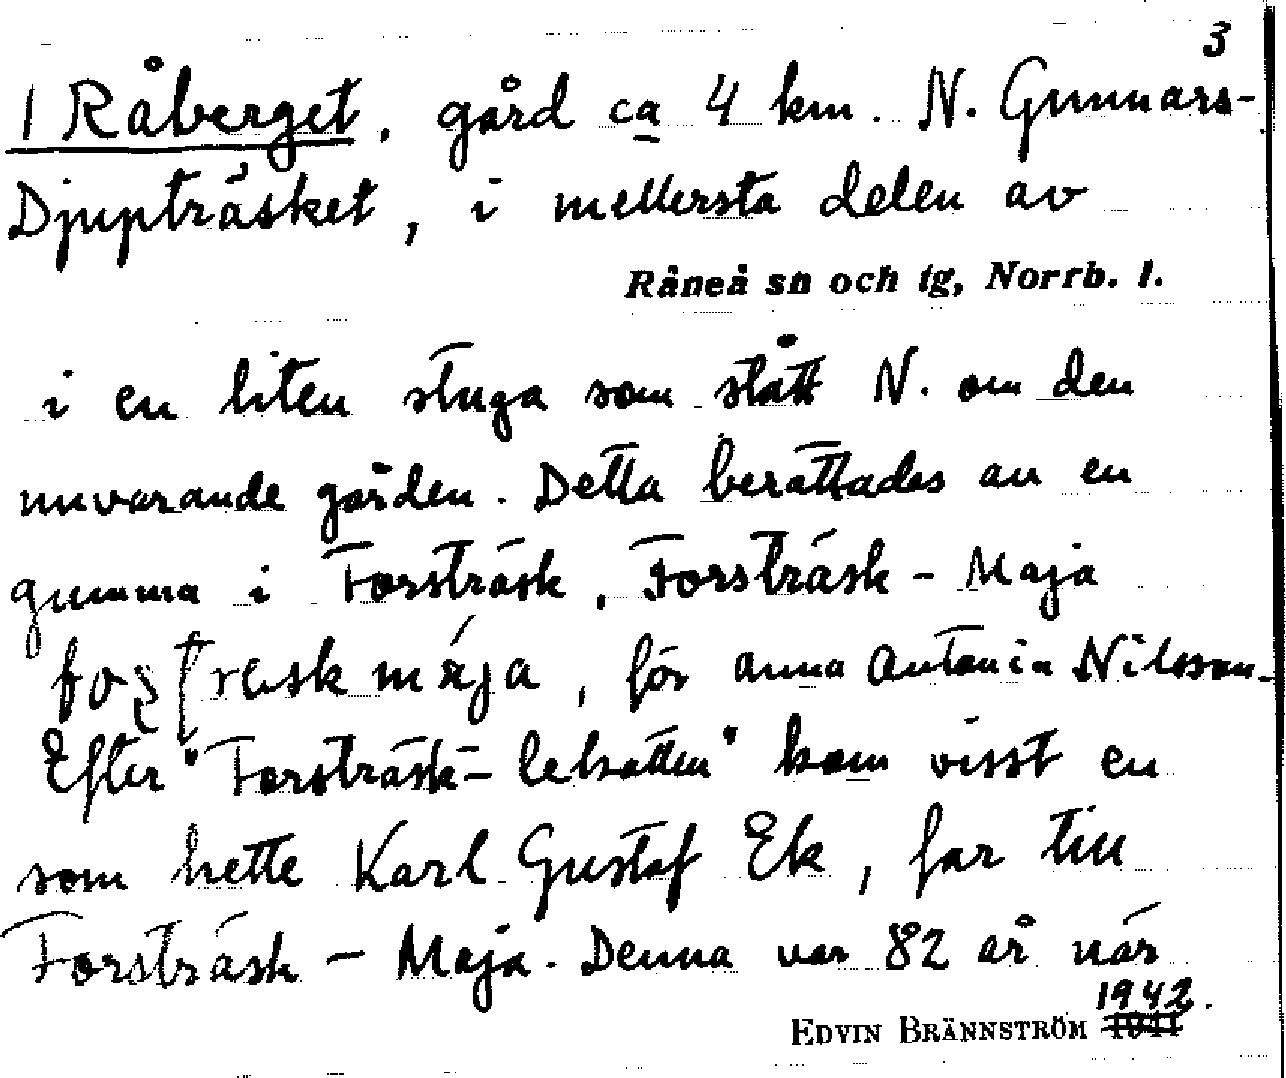 3
1 Råberget, gård ca 4 km. N. Gunnars-
Djupträsket, i mellersta delen av
Råneå sn och tg, Norrb. l.
i en liten stuga som stått N. om den
nuvarande gården. Detta berättades av en
gumma i Forsträsk, Forsträsk - Maja
mája, för Anna Antonia Nilsson.
Efter "Forsträsk- lekatten" kom visst en
som hette Karl Gustaf Ek, far till
Forsträsk - Maja. Denna var 82 år när
1942.
EDVIN BRÄNNSTRÖM 1941